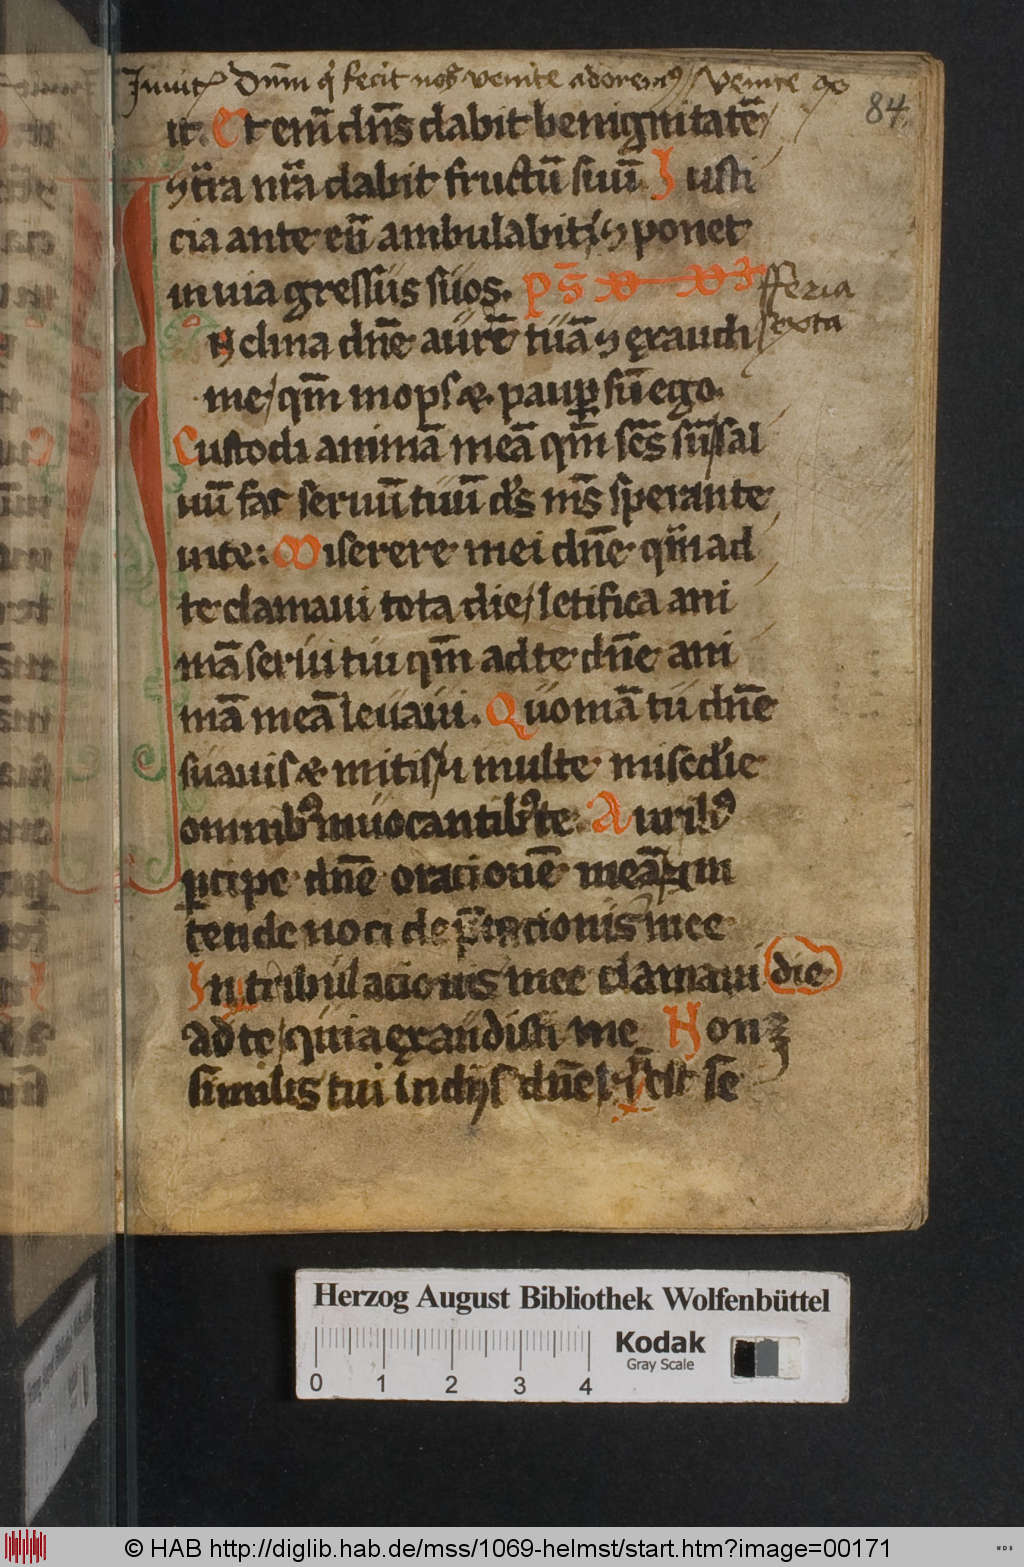 Inuit᷑ Dn̄m q̇ fecit nos venite adorem9 / venite 95
84.
it. Et em̄ dn̄s dabit benignitatē /
⁊ t̄ra nr̄a dabit fructū suū. Iusti
cia ante eū ambulabit / ⁊ ponet
in uia gressus suos. ps̄
fferia
sexta
Nclina dn̄e aurē tuā ⁊ exaudi
me / qm̄ inops ⁊ paup sū ego.
Custodi animā meā qm̄ sc̄s sū / sal
uū fac seruū tuū ds ms̄ sperante
in te: Miserere mei dn̄e qm̄ ad
te clamaui tota die / letifica ani
mā serui tui qm̄ ad te dn̄e ani
mā meā leuaui. Quoniā tu dn̄e
suauis ⁊ mitis / ⁊ multe miscd̓ie
omnib9 inuocantib9 te. Aurib9
pcipe dn̄e orationē meā ⁊ in
tende uoci dep̄cationis mee
In tribulacionis mee clamaui die
ad te / quia exaudisti me Non ē
similis tui in dijs dn̄e / ⁊ n̄ est se
Herzog August Bibliothek Wolfenbüttel
Kodak
Gray Scale
0 1 2 3 4
© HAB http://diglib.hab.de/mss/1069-helmst/start.htm?image=00171